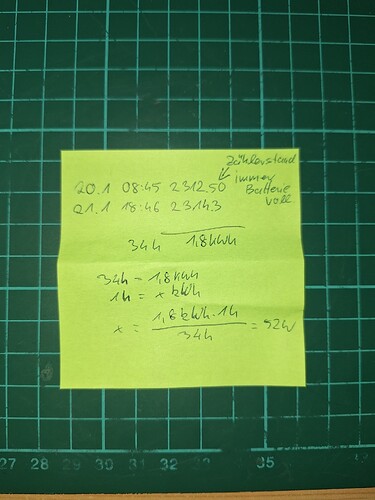 Zählerstand
immer
Batterie
voll
20.1 08:45 2312.50
21.1 18:46 2314.3
34h 1,8kWh
34h = 1,8kWh
1h = x kWh
x = 1,8kWh·1h
34h
= 52W
27 28 29 30 31 32 33 35